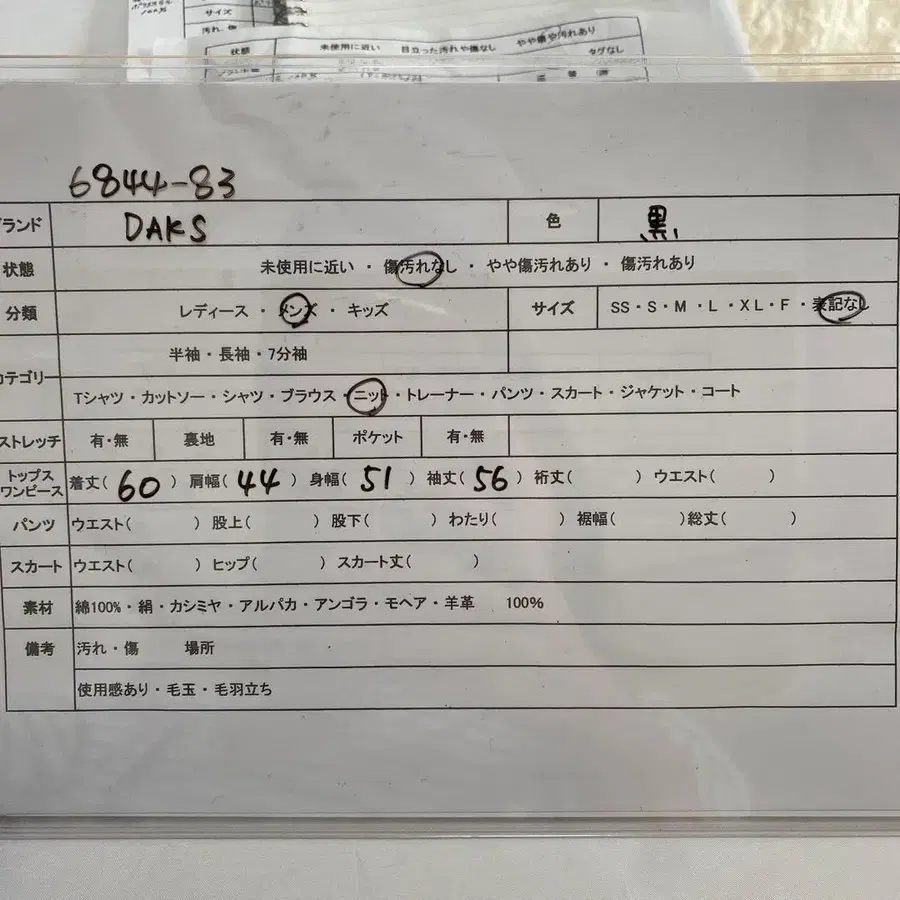 サイズ
汚れ、傷
状態 未使用に近い 目立った汚れや傷なし やや傷や汚れあり タグなし
6844-83
ランド DAKS 色 黒
状態 未使用に近い ・ 傷汚れなし ・ やや傷汚れあり ・ 傷汚れあり
分類 レディース ・ メンズ ・ キッズ サイズ SS・S・M ・L ・XL・F ・表記なし
半袖・長袖・7分袖
カテゴリー
Tシャツ・カットソー・シャツ・ブラウス・ニット・トレーナー・パンツ・スカート・ジャケット・コート
ストレッチ 有・無 裏地 有・無 ポケット 有・無
トップス
ワンピース 着丈( 60 ) 肩幅( 44 ) 身幅( 51 ) 袖丈( 56 ) 裄丈( ) ウエスト( )
パンツ ウエスト( ) 股上( ) 股下( ) わたり( ) 裾幅( )総丈( )
スカート ウエスト( ) ヒップ( ) スカート丈( )
素材 綿100%・絹・カシミヤ・アルパカ・アンゴラ・モヘア・羊革 100%
備考 汚れ・傷 場所
使用感あり・毛玉・毛羽立ち